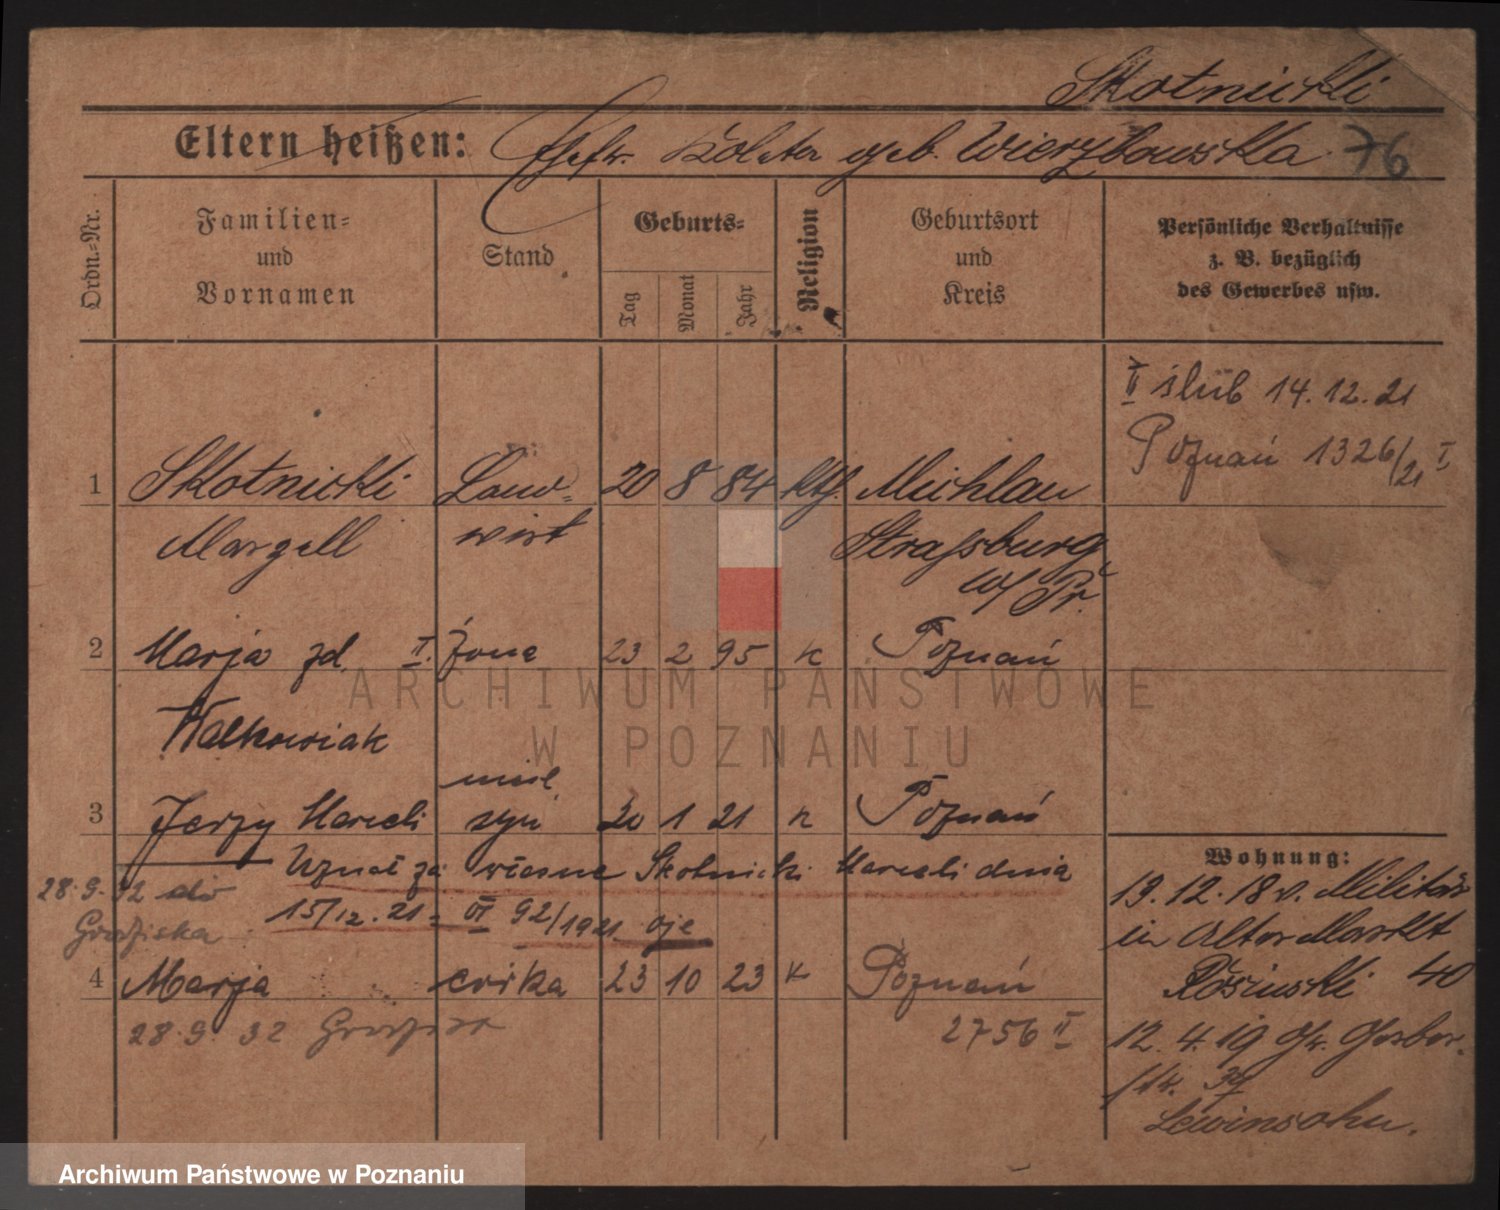 Skotnicki
Eltern heißen: Ehefr. geb. Wierzbowska 76
Ordn.-Nr.
Familien-
und
Vornamen
Stand
Geburts-
Tag
Monat
Jahr
Religion
Geburtsort
und
Kreis
Persönliche Verhältnisse
z. B. bezüglich
des Gewerbes usw.
II ślub 14.12.21
Poznań 1326/21 I
1 Skotnicki Land- 20 8 84 kth. Michlau
Margell wirt Strassburg
W/Pr.
2 Marja zd. II. żona 23 2 95 k Poznań
Walkowiak
nieśl.
3 Jerzy Marceli syn 20 1 21 k Poznań
Wohnung:
Uznał za własne Skotnicki Marceli dnia
15/12.21 = VI 92/1921
28.9.32 do
19.12.18 v. Militär
in Alter Markt
40
4 Marja córka 23 10 23 k Poznań
28.9.32
2756 II
12.4.19 Gr. Gerber-
str. 37
Lewinsohn.
ARCHIWUM PAŃSTWOWE
W POZNANIU
Archiwum Państwowe w Poznaniu